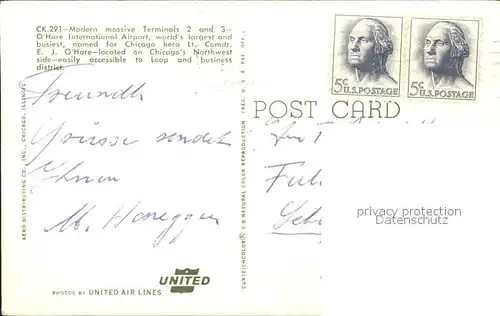 CK.291—Modern massive Terminals 2 and 3—
O'Hare International Airport, world's largest and
busiest, named for Chicago hero Lt. Comdr.
E. J. O'Hare—located on Chicago's Northwest
side—easily accessible to Loop and business
district.
Freundl.
Grüsse sendet
Ihnen
M. Honegger
AERO DISTRIBUTING CO., INC., CHICAGO, ILLINOIS
CURTEICHCOLOR® 3-D NATURAL COLOR REPRODUCTION (REG. U. S. A. PAT. OFF.)
POST CARD
5c
U.S. POSTAGE
5c
U.S. POSTAGE
privacy protection
watermark
UNITED
PHOTOS BY UNITED AIR LINES